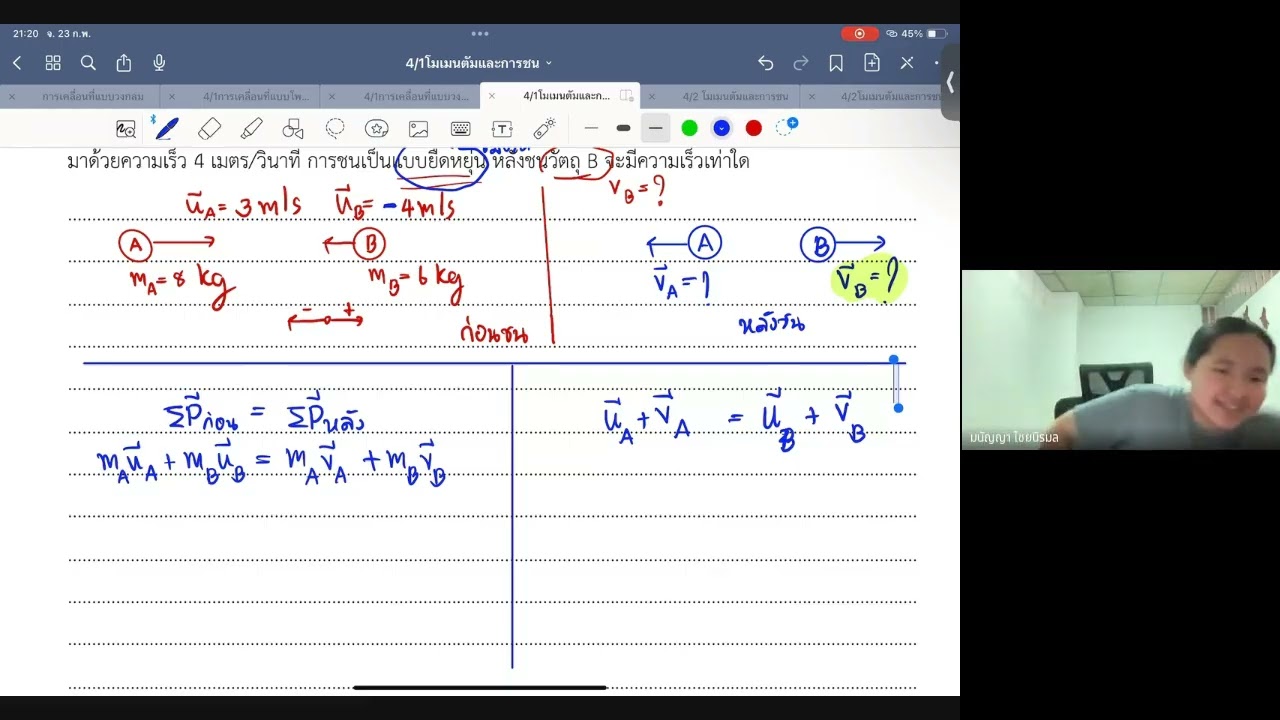 21:20 จ. 23 ก.พ.
45%
4/1โมเมนตัมและการชน
การเคลื่อนที่แบบวงกลม
4/1การเคลื่อนที่แบบโพ...
4/1การเคลื่อนที่แบบวง...
4/1โมเมนตัมและก...
4/2 โมเมนตัมและการชน
4/2โมเมนตัมและการชน
มาด้วยความเร็ว 4 เมตร/วินาที การชนเป็นแบบยืดหยุ่น หลังชนวัตถุ B จะมีความเร็วเท่าใด
v_B = ?
u⃗_A = 3 m/s u⃗_B = -4 m/s
A B A B
m_A = 8 kg m_B = 6 kg v⃗_A = ? v⃗_B = ?
- +
ก่อนชน หลังชน
Σp⃗ก่อน = Σp⃗หลัง
m_A u⃗_A + m_B u⃗_B = m_A v⃗_A + m_B v⃗_B
u⃗_A + v⃗_A = u⃗_B + v⃗_B
มนัญญา ไชยนิรมล